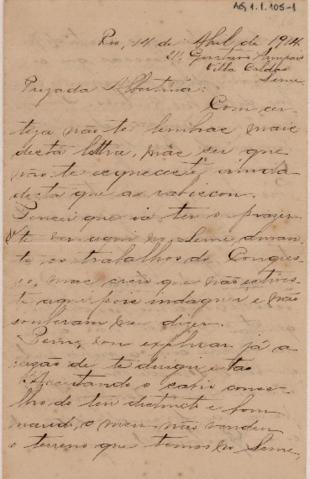 AG, 1.1.105-1
Rio, 14 de Abril de 1914.
Villa Caldas
Leme.
Prezada Albertina:
Com cer-
teza não te lembras mais
desta lettra, mas sei que
não te esqueceste ainda
desta que as rabiscou.
Pensei que ia ter o prazer
te ver aqui no Leme duran-
te os trabalhos do Congres-
so, mas creio que não estives-
te aqui, pois indaguei e não
souberam me dizer.
Bem, vou explicar já a
razão de te dirigir estas
Acceitando o conse-
lho do teu distincto e bom
marido, o meu não vendeu
o terreno que temos no Leme,